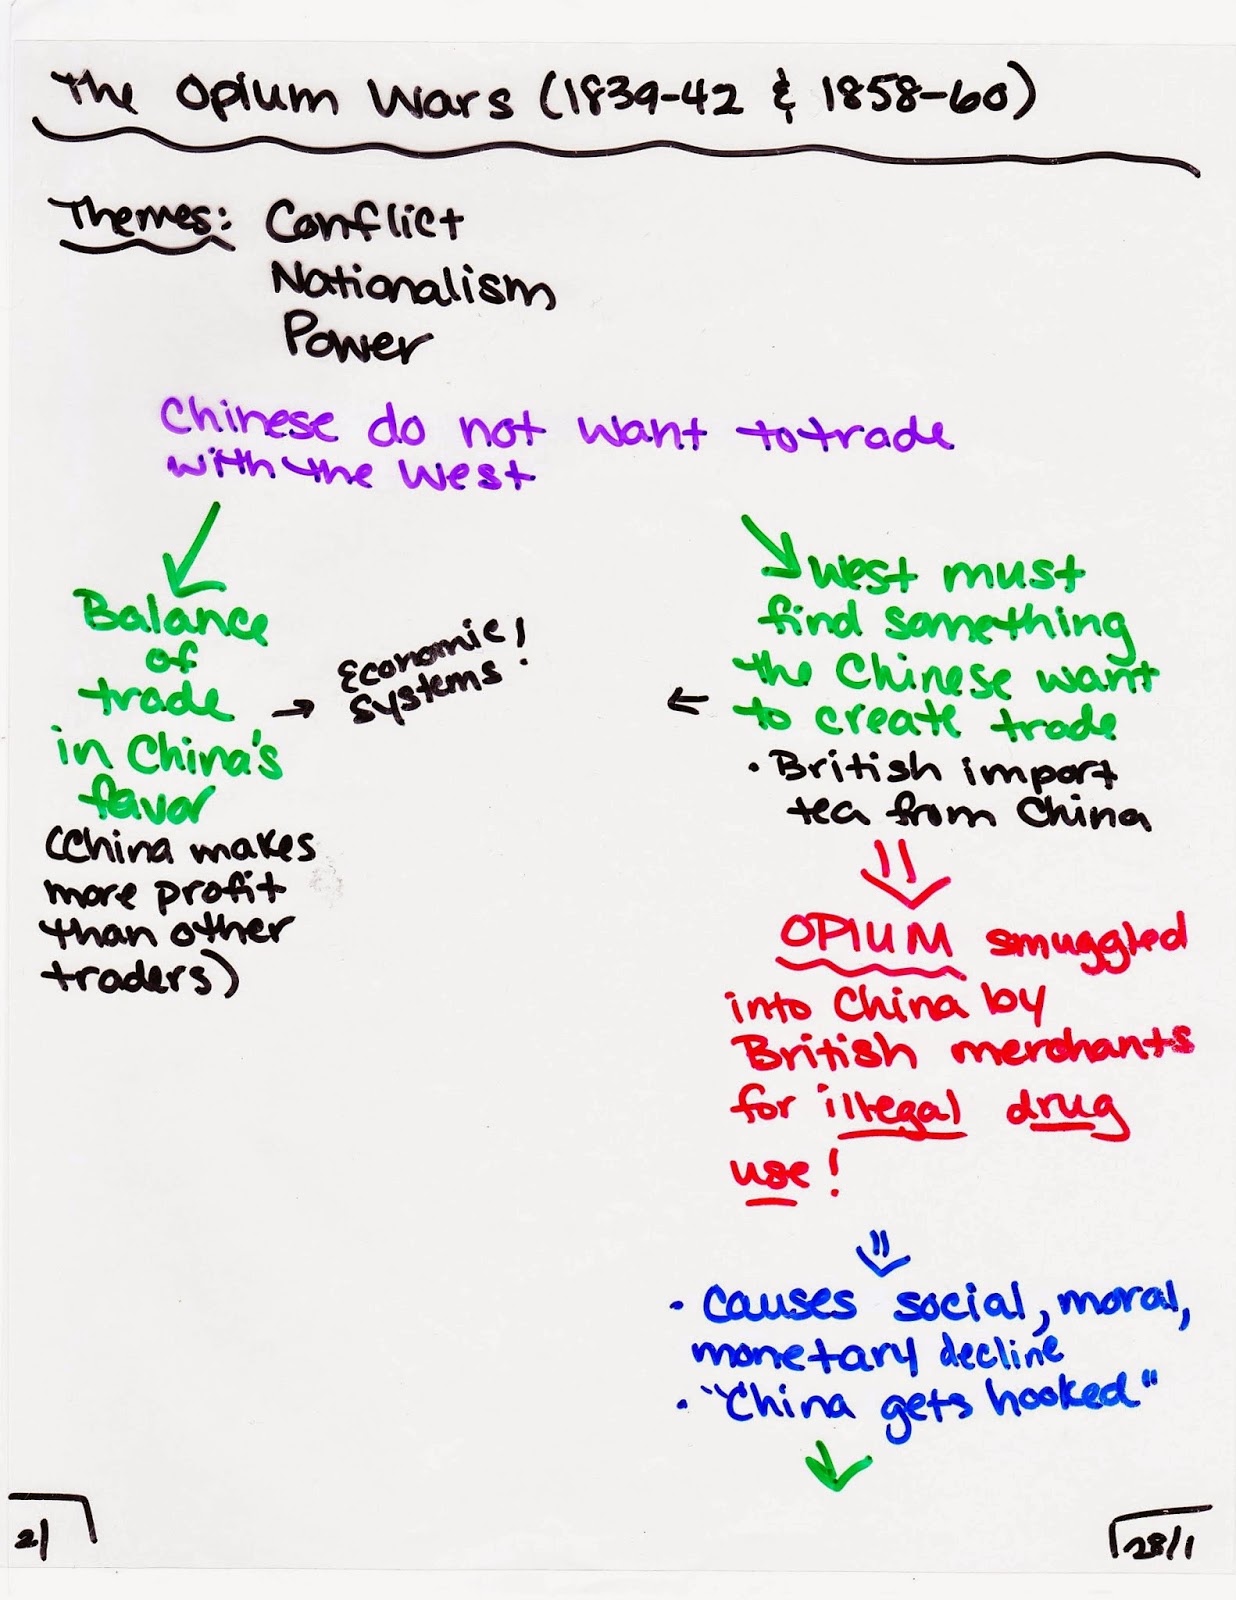 The Opium Wars (1839-42 & 1858-60)
Themes: Conflict
Nationalism
Power
Chinese do not want to trade
with the West
Balance
of
trade
in China's
favor
(China makes
more profit
than other
traders)
→ Economic
Systems!
←
West must
find something
the Chinese want
to create trade
• British import
tea from China
OPIUM smuggled
into China by
British merchants
for illegal drug
use!
• causes social, moral,
monetary decline
• "China gets hooked"
2/
28/1